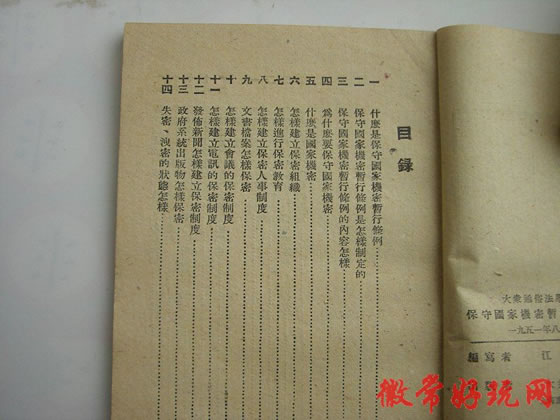 目錄
一 什麽是保守國家機密暫行條例
二 保守國家機密暫行條例是怎樣制定的
三 保守國家機密暫行條例的內容怎樣
四 爲什麽要保守國家機密
五 什麽是國家機密
六 怎樣建立保密組織
七 怎樣進行保密教育
八 怎樣建立保密人事制度
九 文書檔案怎樣保密
十 怎樣建立會議的保密制度
十一 怎樣建立電訊的保密制度
十二 發佈新聞怎樣建立保密制度
十三 政府系統出版物怎樣保密
十四 失密、洩密的狀態怎樣
大衆通俗法
保守國家機密暫
一九五一年八
編寫者 江
微常好玩网